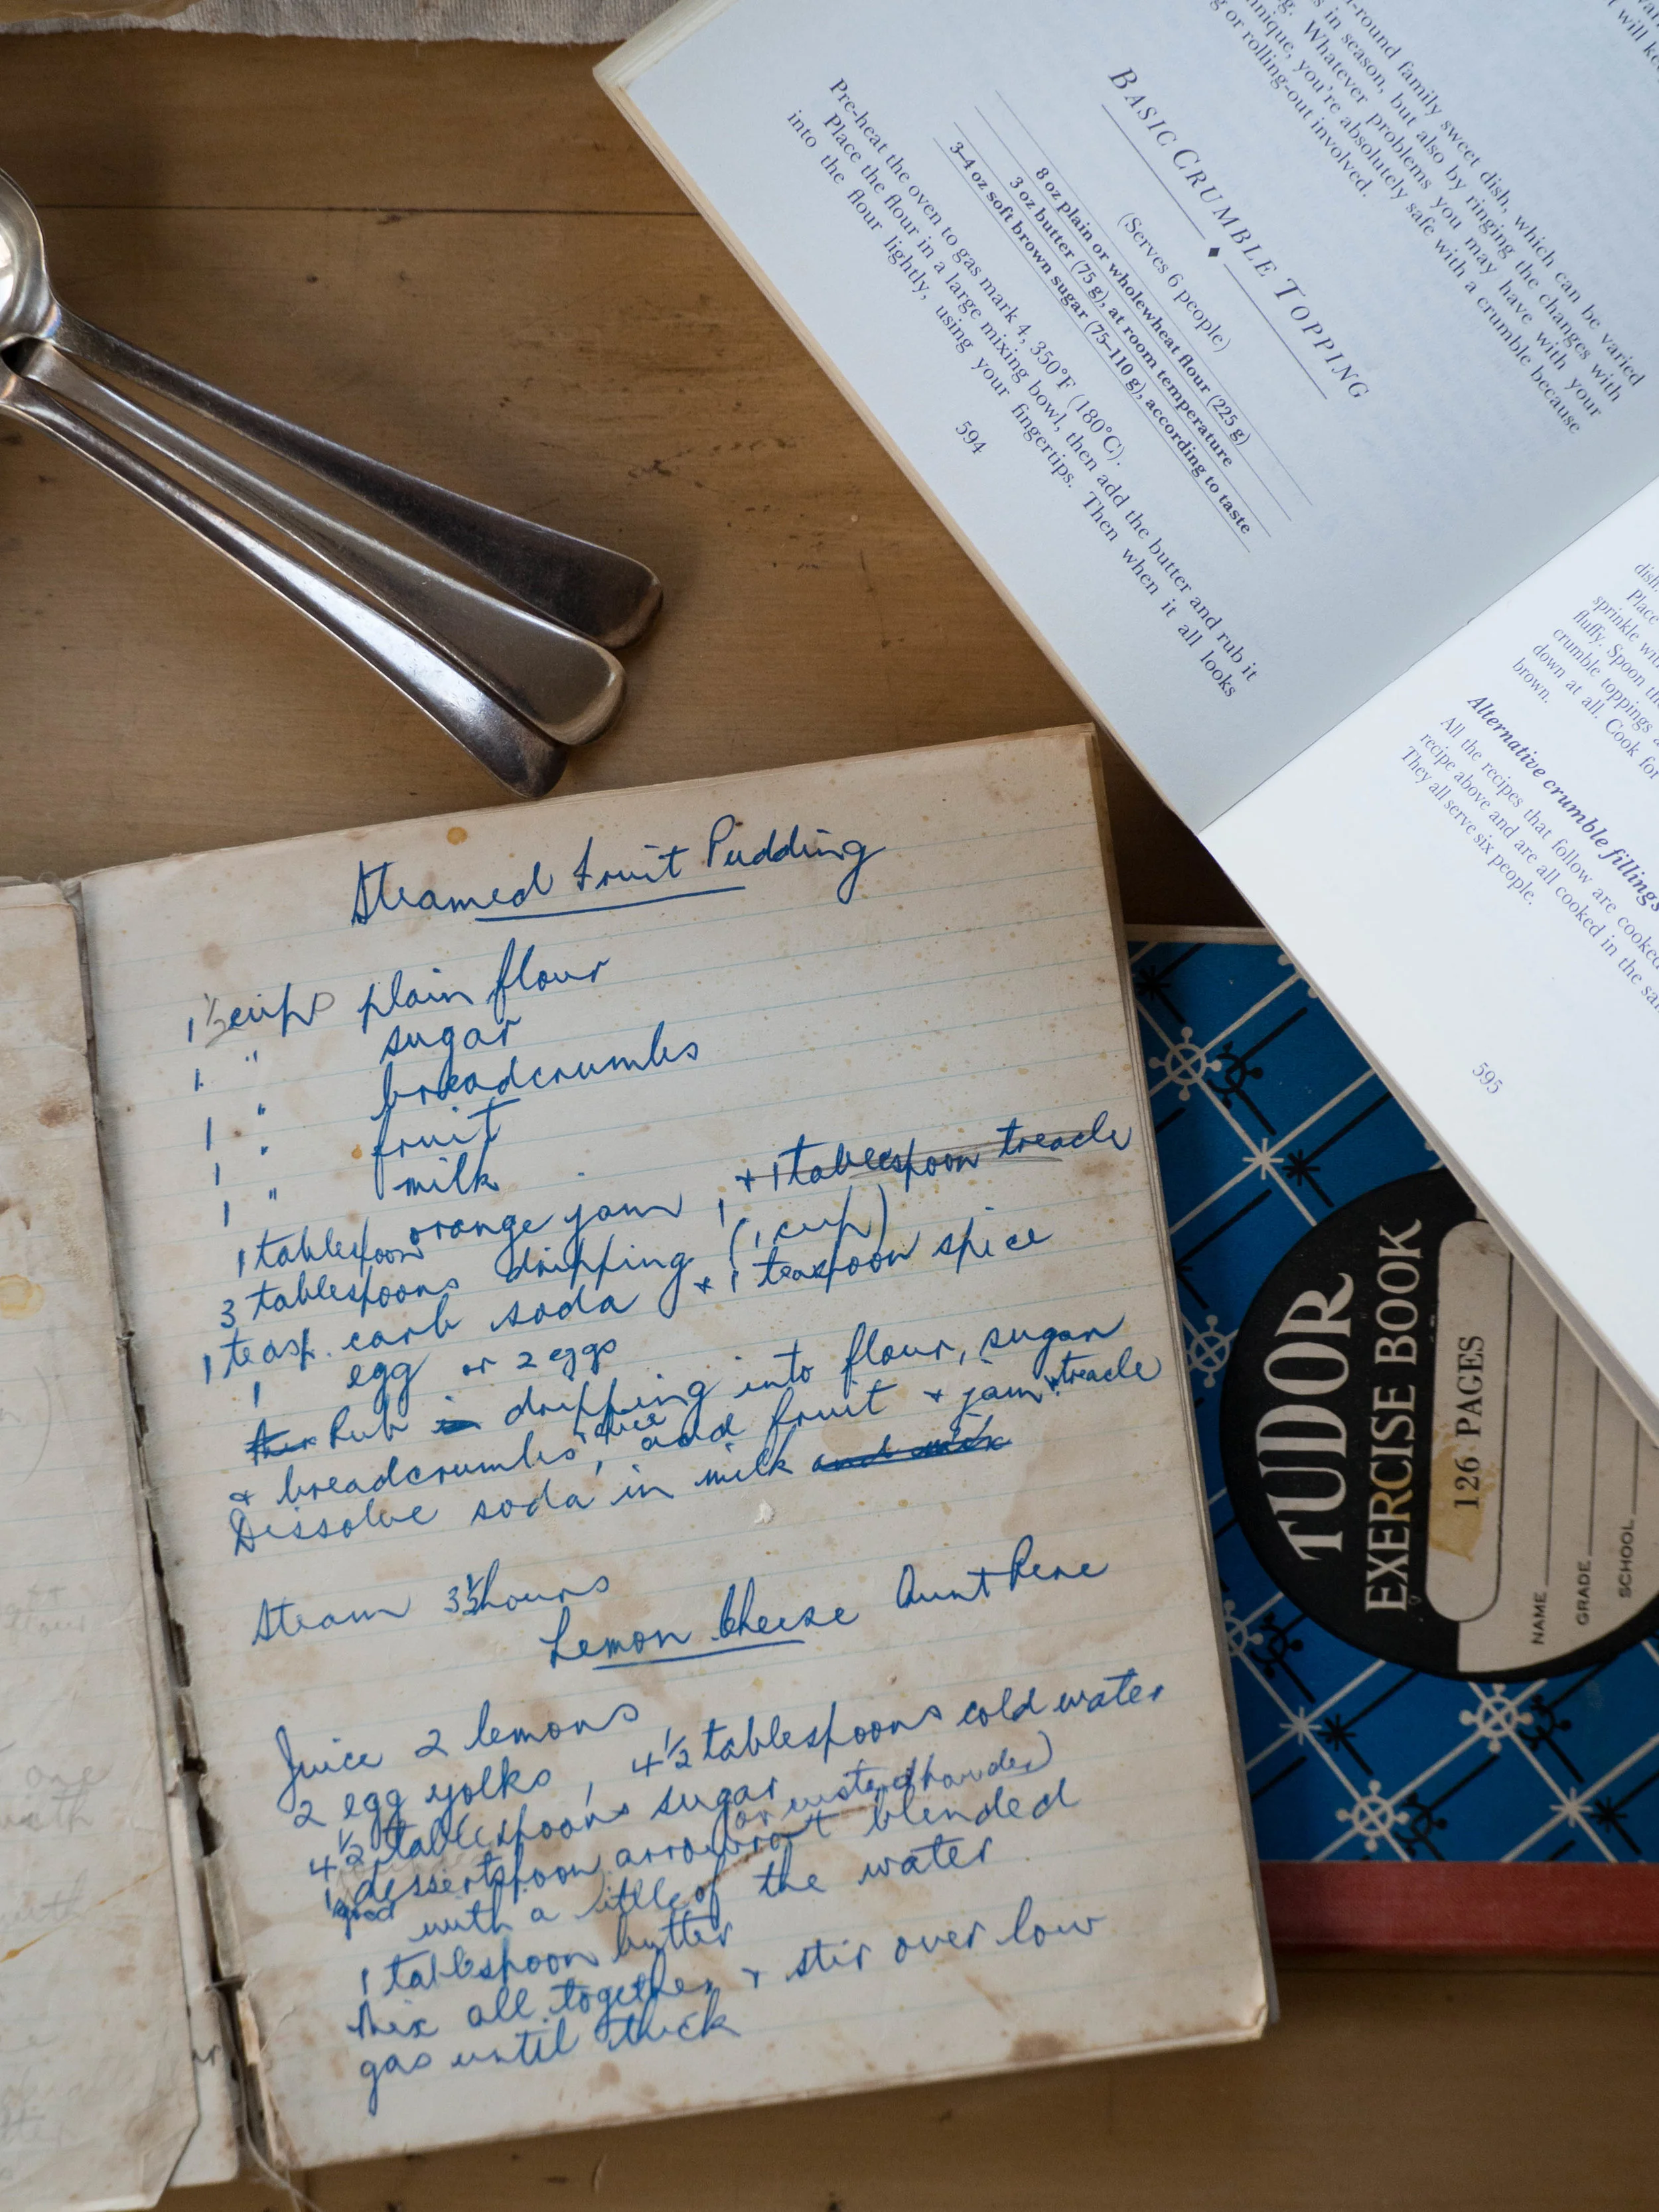 Steamed Fruit Pudding
1 1/2 cups plain flour
1 " sugar
1 " breadcrumbs
1 " fruit
1 " milk
1 tablespoon orange jam, + 1 tablespoon treacle
3 tablespoons dripping (1 cup)
1 teasp. carb soda + 1 teaspoon spice
1 egg or 2 eggs
Rub dripping into flour, sugar
+ breadcrumbs, spice add fruit + jam + treacle
Dissolve soda in milk and mix
Steam 3 1/2 hours
Lemon Cheese Aunt Rene
Juice 2 lemons
2 egg yolks, 4 1/2 tablespoons cold water
4 1/2 tablespoons sugar
(or custard powder)
1 dessertspoon arrowroot blended
with a little of the water
1 tablespoon butter
Mix all together + stir over low
gas until thick
-round family sweet dish, which can be varied
s in season, but also by ringing the changes with
g. Whatever problems you may have with your
nique, you're absolutely safe with a crumble because
g or rolling-out involved.
BASIC CRUMBLE TOPPING
(Serves 6 people)
8 oz plain or wholewheat flour (225 g)
3 oz butter (75 g), at room temperature
3–4 oz soft brown sugar (75–110 g), according to taste
Pre-heat the oven to gas mark 4, 350°F (180°C).
Place the flour in a large mixing bowl, then add the butter and rub it
into the flour lightly, using your fingertips. Then when it all looks
594
dish.
Place
sprinkle with
fluffy. Spoon the
crumble toppings
down at all. Cook for
brown.
Alternative crumble fillings
All the recipes that follow are cooked
recipe above and are all cooked in the
They all serve six people.
595
TUDOR
EXERCISE BOOK
126 PAGES
NAME
GRADE
SCHOOL